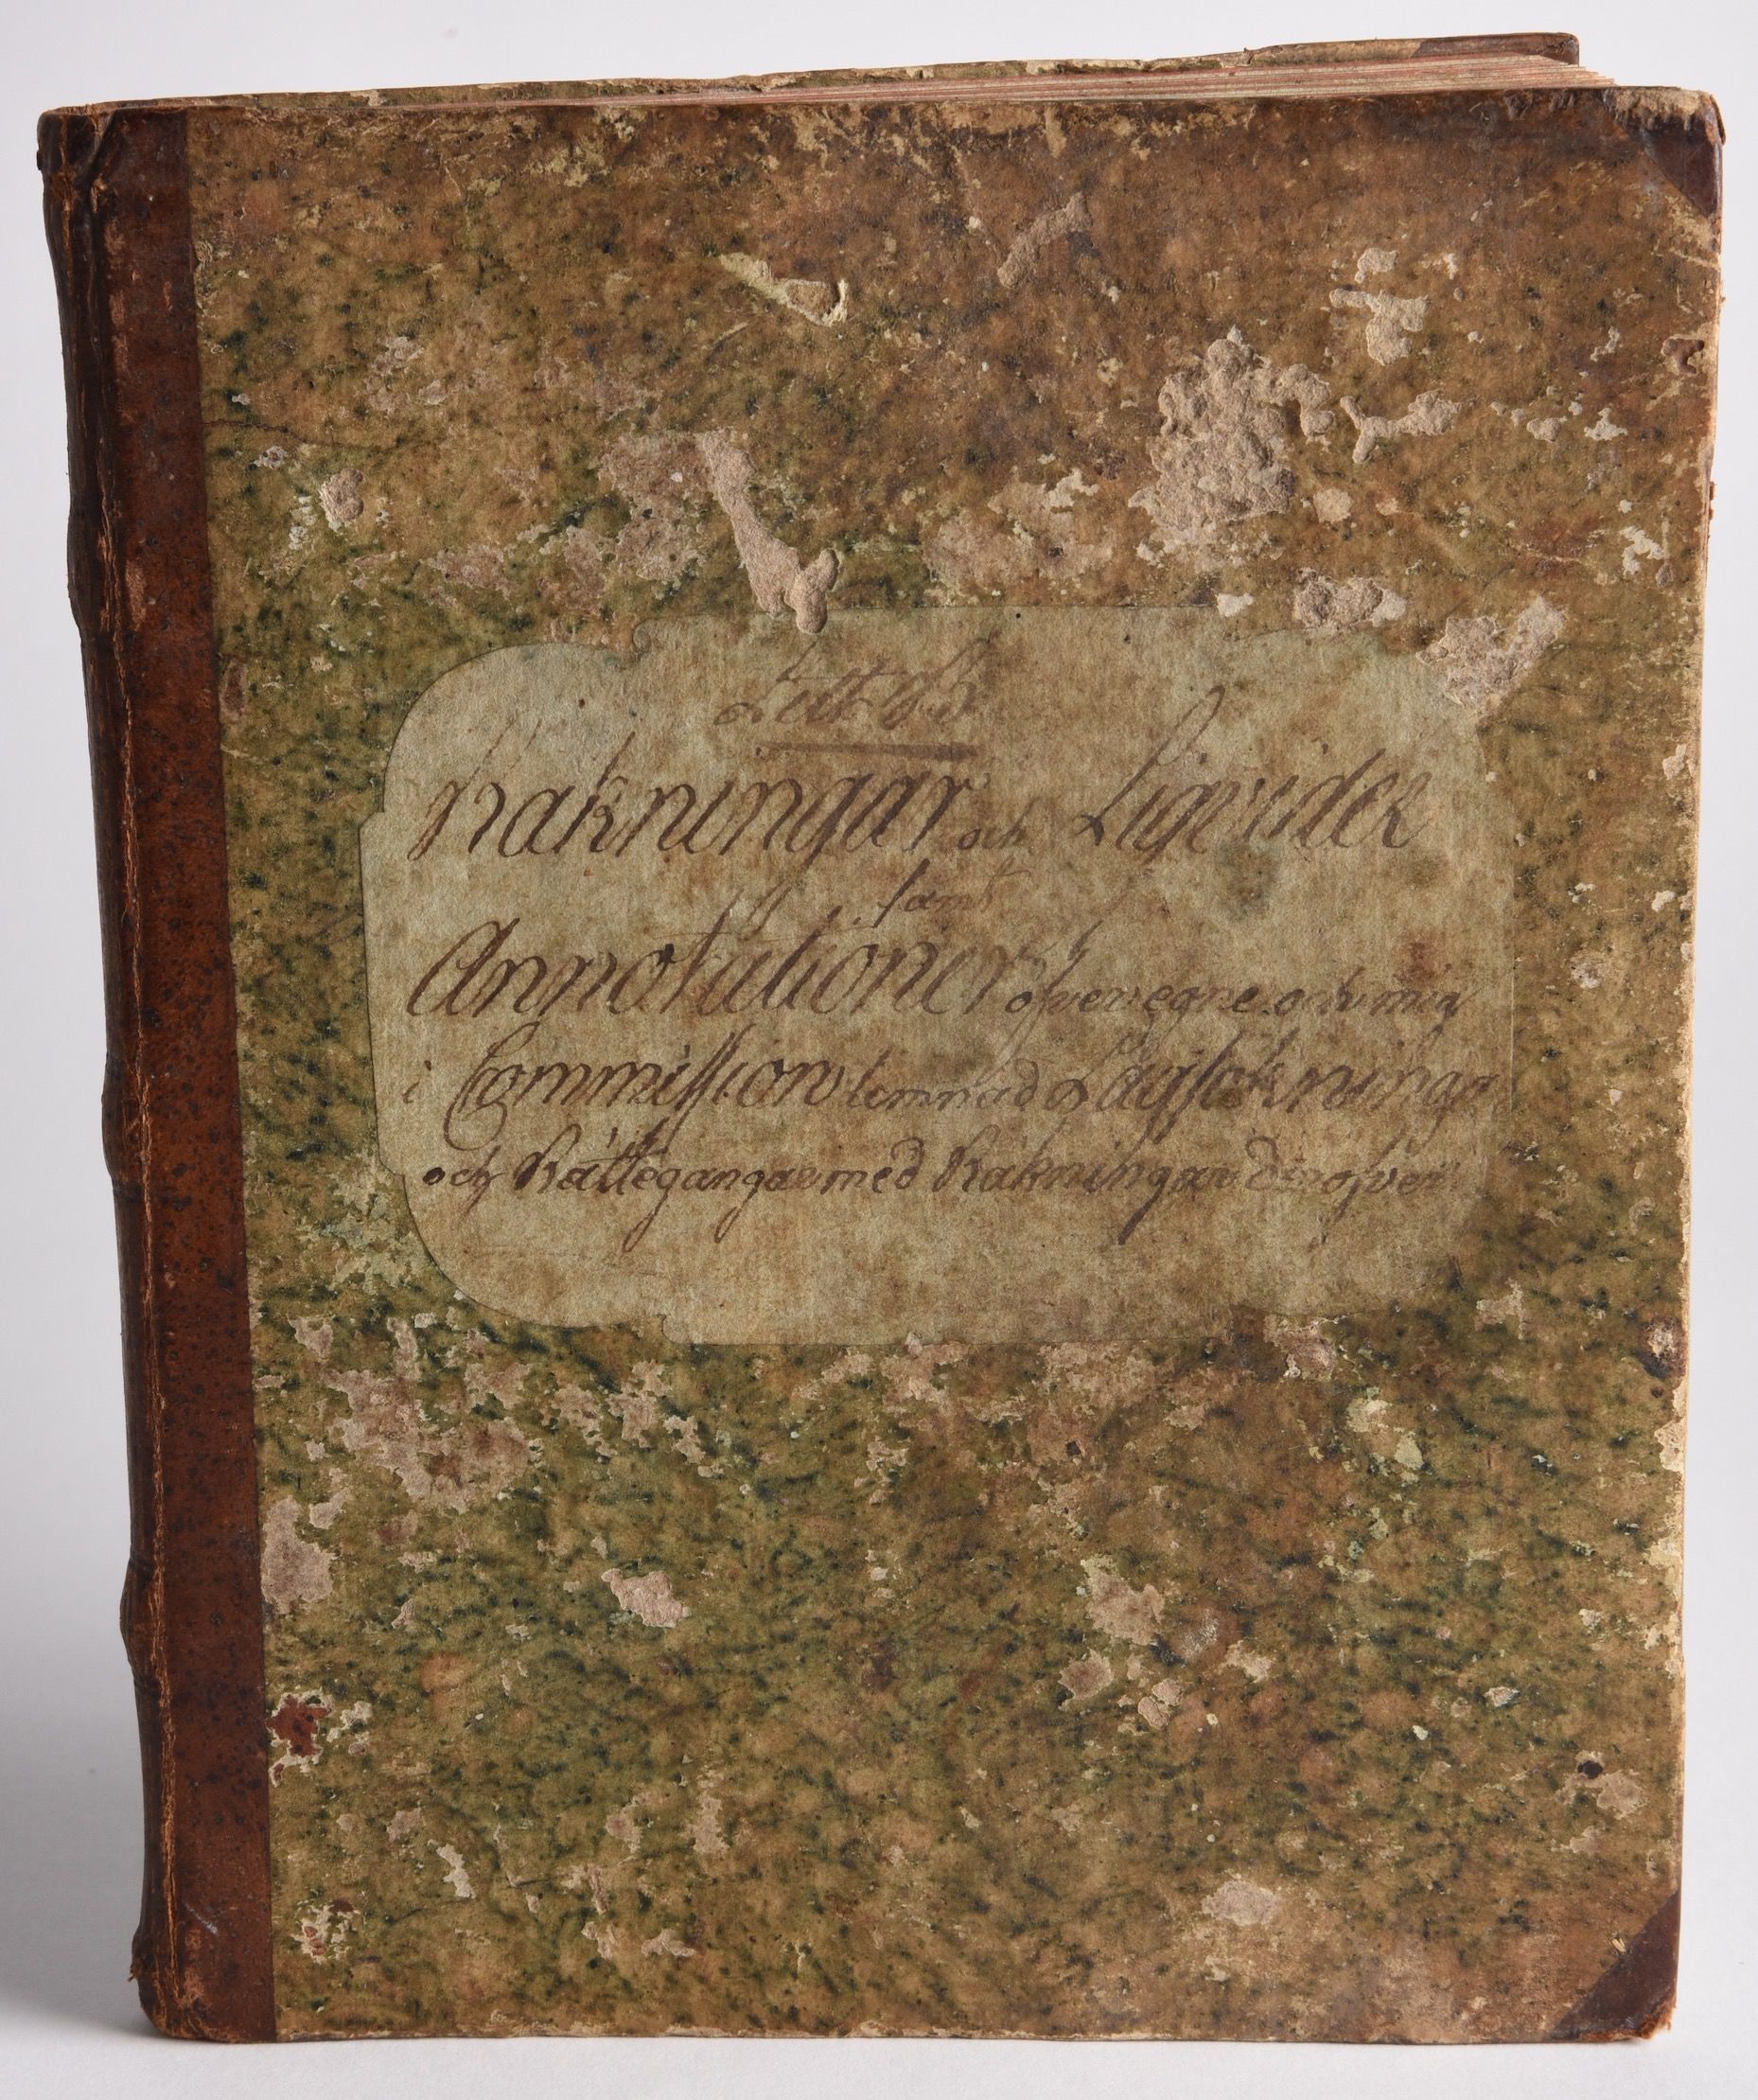 Litt. B.
Räkningar och Liqvider
samt
Annotationer öfver egne och mig
i Commission lemnade Lagsökningar
och Rättegångar med Räkningar deröfver